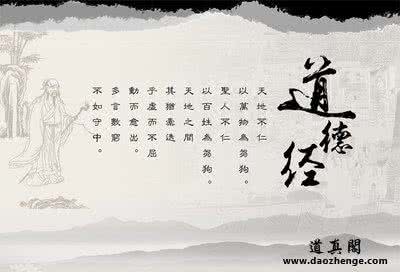 道德经
天地不仁
以萬物為芻狗。
聖人不仁
以百姓為芻狗。
天地之間
其猶橐
乎虛而不屈
動而愈出。
多言數窮
不如守中。
道真閣
www.daozhenge.com